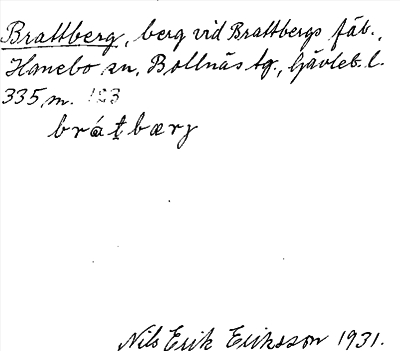 Brattberg, berg vid Brattbergs fäb.,
Hanebo sn, Bollnäs tg., Gävleb. l.
335 m. 123
brátbærj
Nils Erik Eriksson 1931.